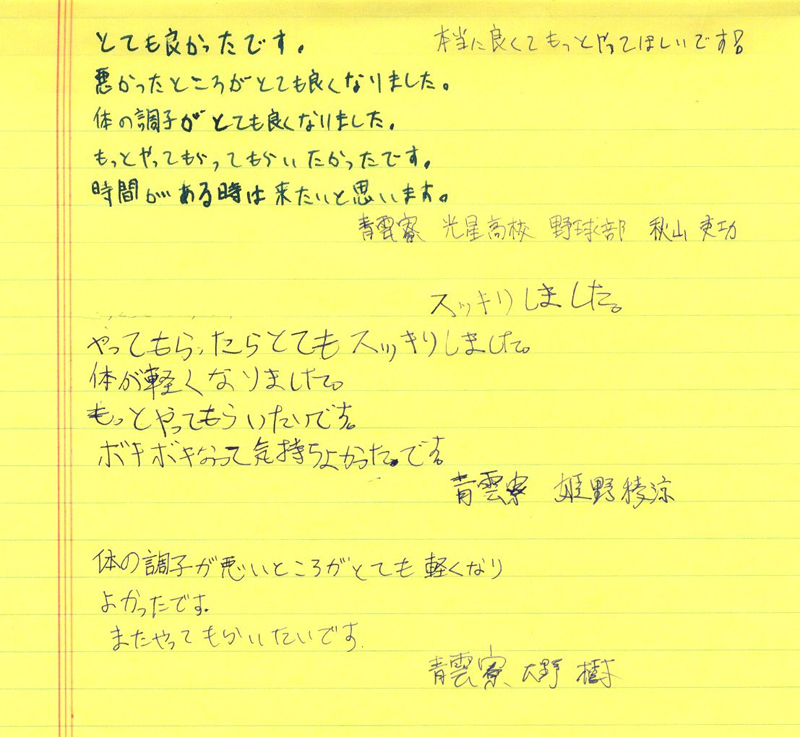 とても良かったです。
本当に良くてもっとやってほしいです!
悪かったところがとても良くなりました。
体の調子がとても良くなりました。
もっとやってもらってもらいたかったです。
時間がある時は来たいと思います。
青雲寮 光星高校 野球部 秋山
スッキリしました。
やってもらったらとてもスッキリしました。
体が軽くなりました。
もっとやってもらいたいです。
ボキボキなって気持ちよかったです。
青雲寮 姫野稜涼
体の調子が悪いところがとても軽くなり
よかったです。
またやってもらいたいです。
青雲寮 大野 樹